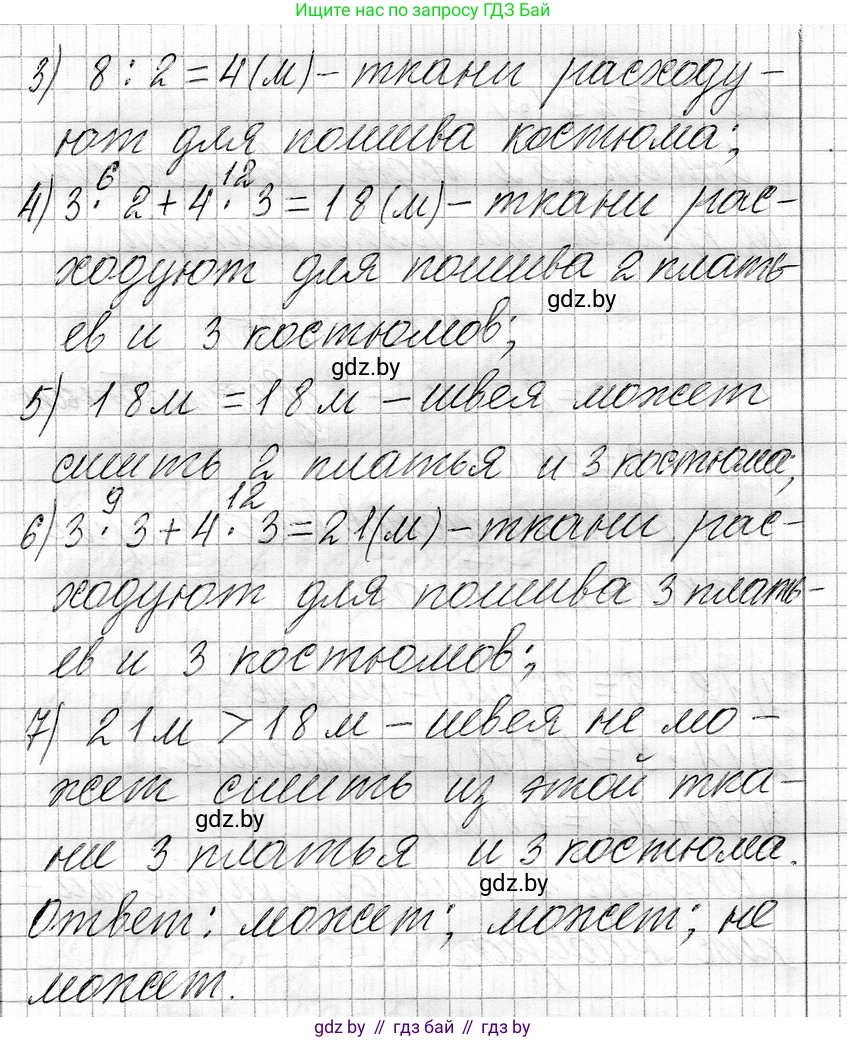 Ищите нас по запросу ГДЗ Бай
3) 8 : 2 = 4 (м) – ткани расходу-
ют для пошива костюма;
6 12
4) 3 · 2 + 4 · 3 = 18 (м) – ткани рас-
ходуют для пошива 2 плать-
gdz.by
ев и 3 костюмов;
gdz.by
5) 18 м = 18 м – швея может
сшить 2 платья и 3 костюма;
9 12
6) 3 · 3 + 4 · 3 = 21 (м) – ткани рас-
ходуют для пошива 3 плать-
ев и 3 костюмов;
7) 21 м > 18 м – швея не мо-
жет сшить из этой тка-
gdz.by
ни 3 платья и 3 костюма.
gdz.by
Ответ: может; может; не
может.
gdz.by // гдз бай // gdz.by